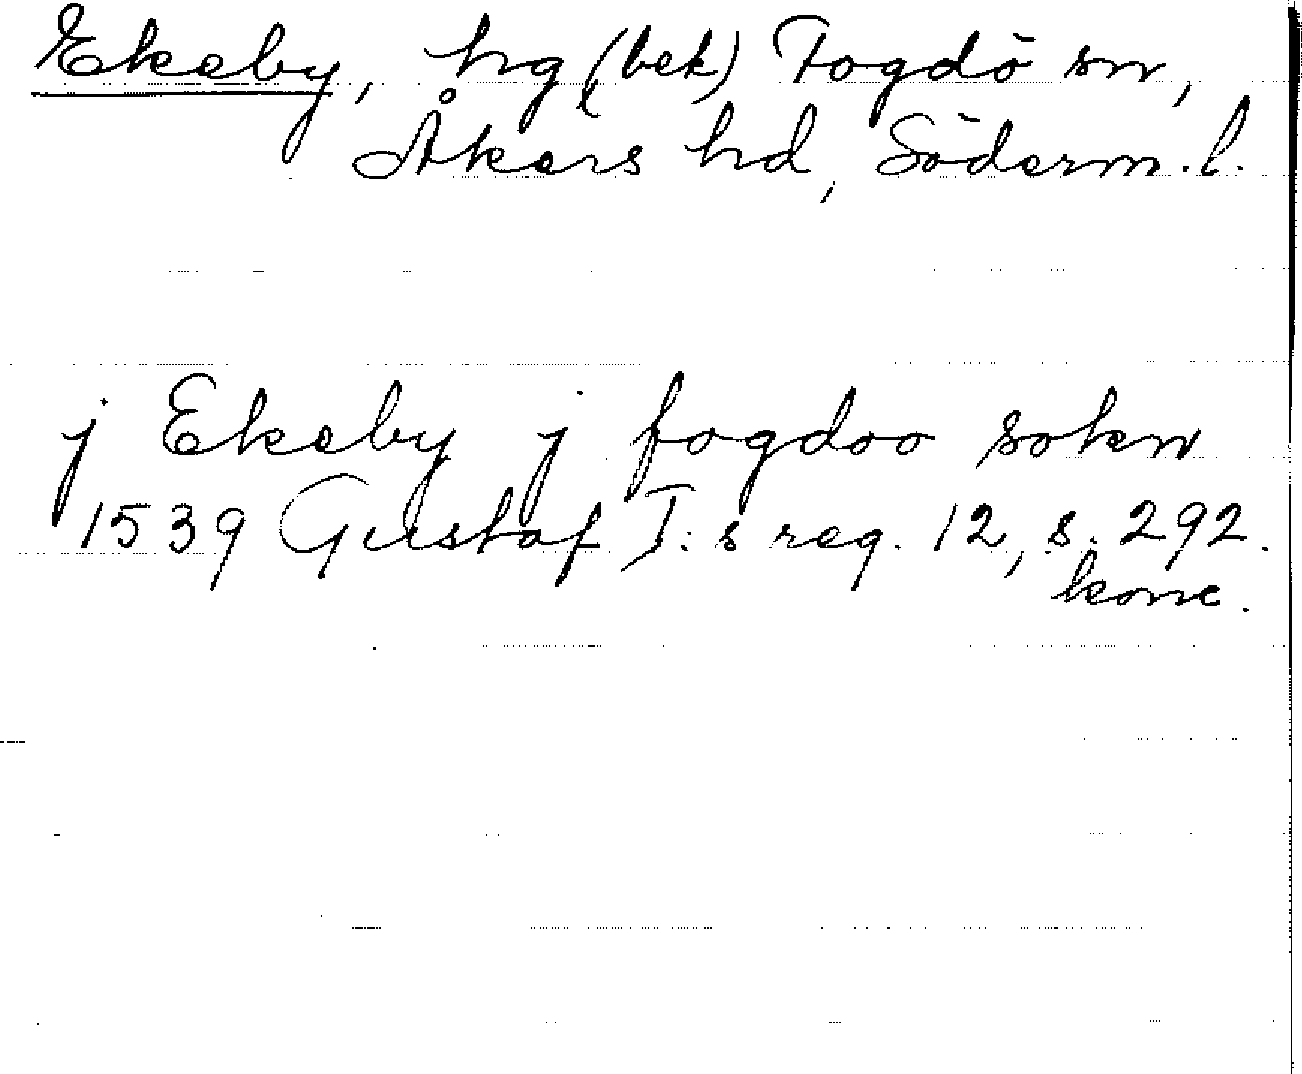 Ekeby, hg (bek) Fogdö sn,
Åkers hd, Söderm.l.
j Ekeby j fogdoo sokn
1539 Gustaf I:s reg. 12, s. 292.
konc.